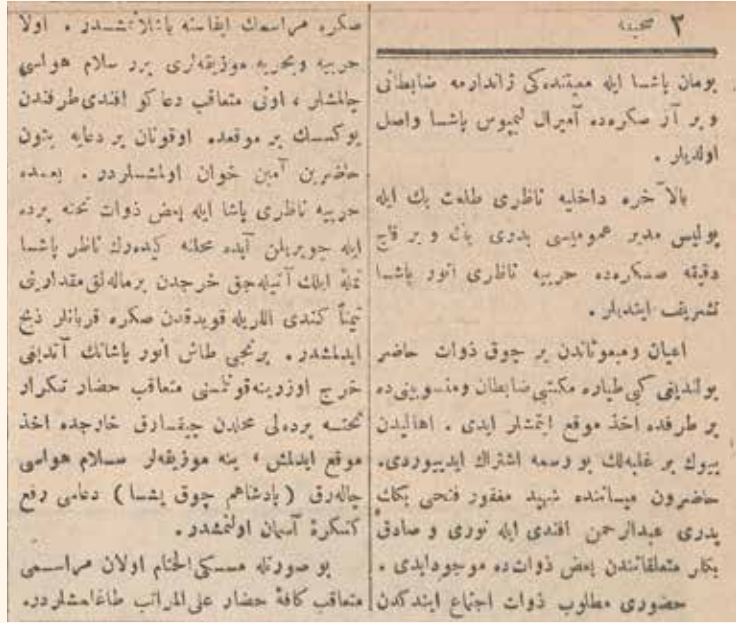 ٢ صحیفه
بومان پاشا ایله معیتنده‌كی ژاندارمه ضابطانی
و بر آز صكره‌ده آمیرال لیمپوس پاشا واصل
اولدیلر .
بالآخره داخلیه ناظری طلعت بك ایله
پولیس مدیر عمومیسی بدری بك و بر قاچ
دقیقه صكره‌ده حربیه ناظری انور پاشا
تشریف ایتدیلر .
اعیان ومبعوثاندن بر چوق ذوات حاضر
بولندیغی كبی طیاره مكتبی ضابطان ومنسوبینی‌ده
بر طرفده اخذ موقع ایتمشلر ایدی . اهالیدن
بیوك بر غلبه‌لك بو رسمه اشتراك ایدییوردی.
حاضرون میاننده شهید مغفور فتحی بكك
پدری عبدالرحمن افندی ایله نوری و صادق
بكلر متعلقاتندن بعض ذوات‌ده موجودایدی .
حضوری مطلوب ذوات اجتماع ایتدكدن
صكره مراسمك ایفاسنه باشلانمشدر . اولا
حربیه وبحریه موزیقه‌لری برر سلام هواسی
چالمشلر ، اونی متعاقب دعا كو افندی طرفندن
یوكسك بر موقعده اوقونان بر دعایه بتون
حاضرین آمین خوان اولمشلردر . بعده
حربیه ناظری پاشا ایله بعض ذوات تخته پرده
ایله چویریلن آبده محلنه كیده‌رك ناظر پاشا
تملهٔ ایلك آتیله‌جق خرجدن برماله‌لق مقدارینی
تیمناً كندی اللریله قویدقدن صكره قربانلر ذبح
ایدلمشدر . برنجی طاش انور پاشانك آتدیغی
خرج اوزرینه‌قونلسنی متعاقب حضار تكرار
تخته پرده‌لی محلدن چیقارق خارجده اخذ
موقع ایدلمش ، ینه موزیقه‌لر سلام هواسی
چاله‌رق ( پادشاهم چوق یشا ) دعاسی رفع
كنكرهٔ آسمان اولنمشدر .
بو صورتله مسكی‌الختام اولان مراسمی
متعاقب كافهٔ حضار علی‌المراتب طاغلمشلردر.